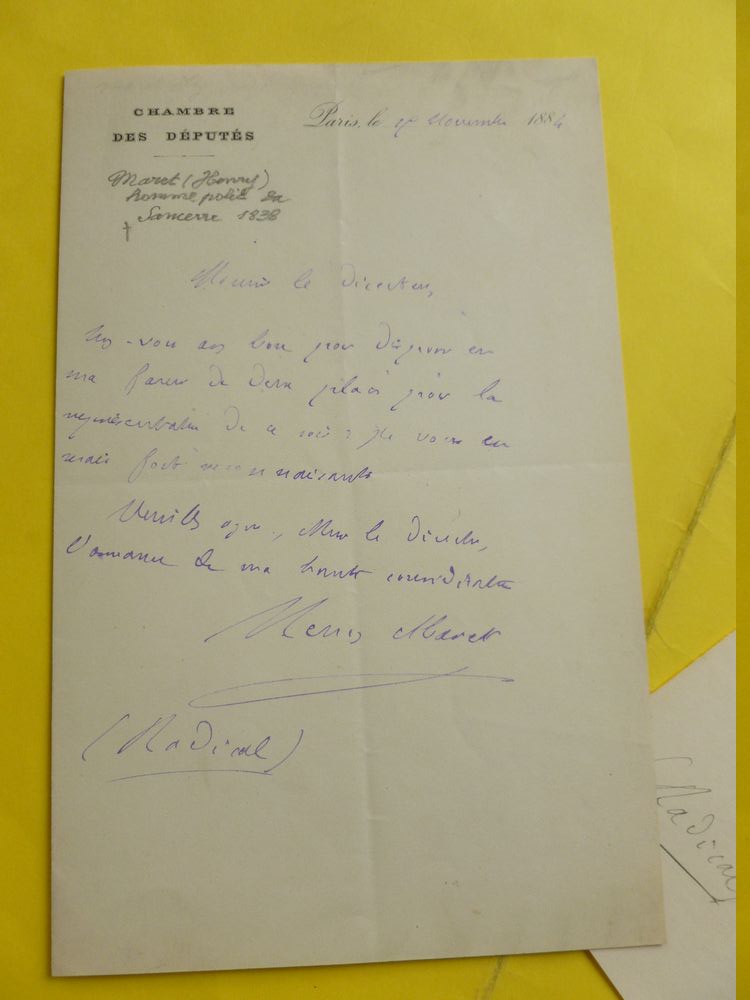 CHAMBRE
DES DÉPUTÉS
Paris, le Novembre 1884
Maret (Henry)
homme polit
Sancerre 1838
†
le Directeur,
vous assez bon pour disposer en
ma faveur de deux places pour la
représentation de ce soir? Je vous en
serais fort reconnaissant
Veuillez agréer, le Directeur,
l'assurance de ma haute considération
Henry Maret
(Radical)
(Radical)